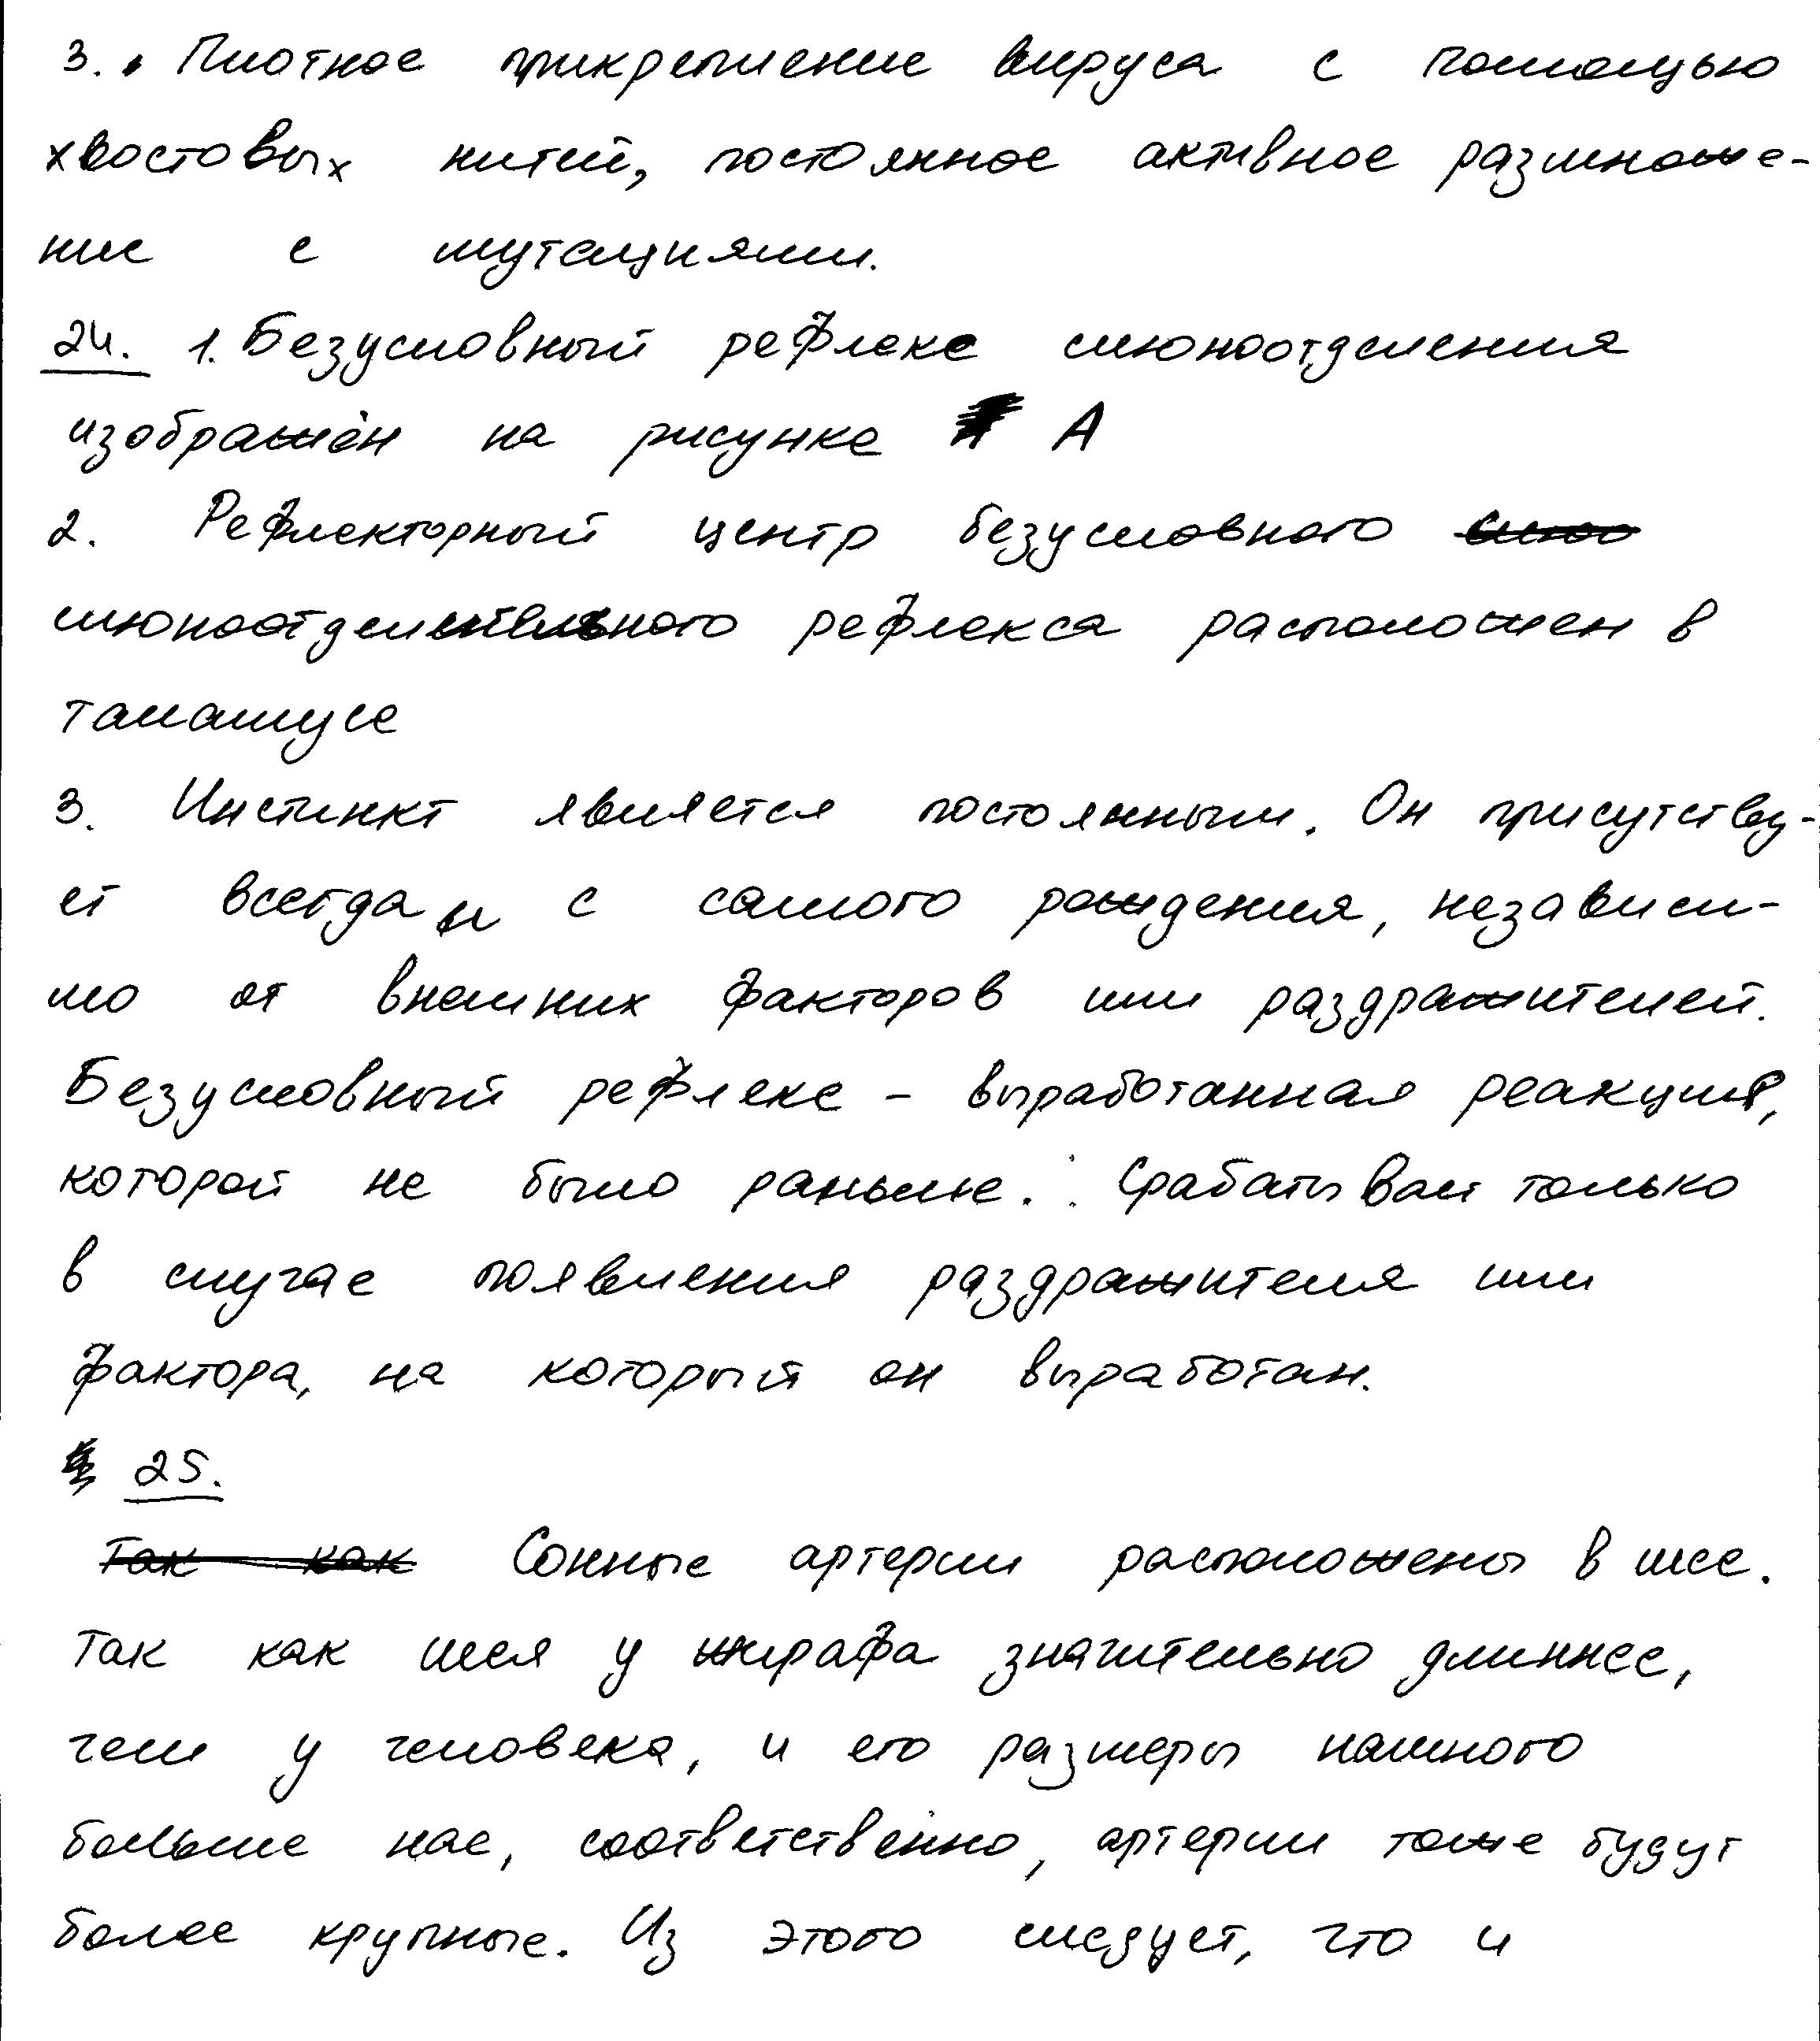 3. Плотное прикрепление вируса с помощью
хвостовых нитей, постоянное активное размноже-
ние с мутациями.
24. 1. Безусловный рефлекс слюноотделения
изображён на рисунке А
2. Рефлекторный центр безусловного
слюноотделительного рефлекса расположен в
таламусе
3. Инстинкт является постоянным. Он присутству-
ет всегда и с самого рождения, независи-
мо от внешних факторов или раздражителей.
Безусловный рефлекс - выработанная реакция,
которой не было раньше. Срабатывает только
в случае появления раздражителя или
фактора, на который он выработан.
25.
Так как Сонные артерии расположены в шее.
Так как шея у жирафа значительно длиннее,
чем у человека, и его размеры намного
больше нас, соответственно, артерии тоже будут
более крупные. Из этого следует, что и